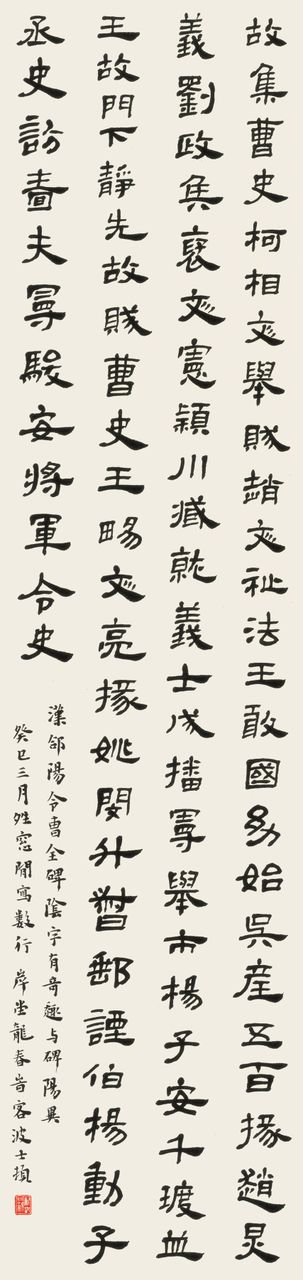 故集曹史柯相文舉賊趙文祉法王敢國幼始吳產五百掾趙炅
義劉政隽裒文憲潁川臧就義士成播曼舉市楊子安千
王故門下靜先故賊曹史王畼文亮掾姚閔升督郵諲伯楊動子
丞史訪嗇夫曼駿安將軍令史
漢郃陽令曹全碑陰字有奇趣与碑陽異
癸巳三月窓閒寫數行 岸堂龍春昔客波士頓